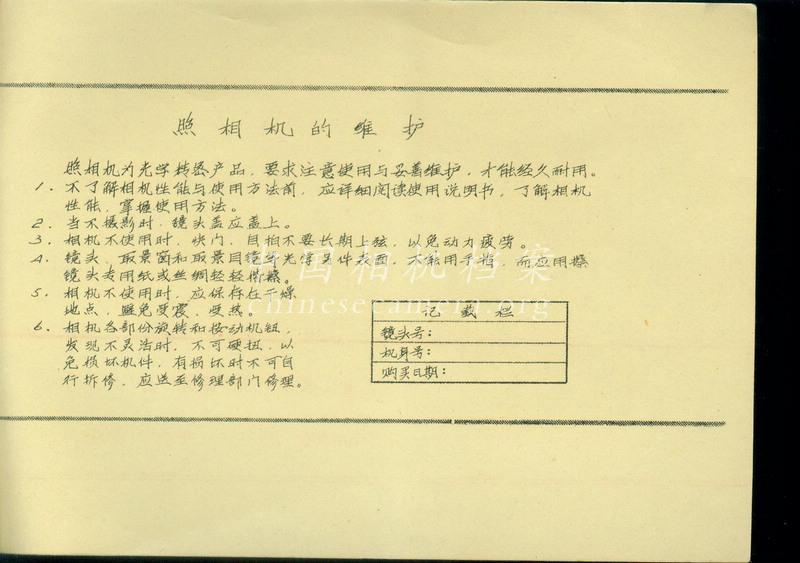 照相机的维护
照相机为光学精密产品，要求注意使用与妥善维护，才能经久耐用。
1. 不了解相机性能与使用方法前，应详细阅读使用说明书，了解相机
性能，掌握使用方法。
2. 当不摄影时，镜头盖应盖上。
3. 相机不使用时，快门、自拍不要长期上弦，以免动力疲劳。
4. 镜头、取景窗和取景目镜等光学另件表面，不能用手指，而应用擦
镜头专用纸或丝绸轻轻擦。
5. 相机不使用时，应保存在干燥
地点，避免受震，受热。
6. 相机各部份旋转和按动机钮，
发现不灵活时，不可硬扭，以
免损坏机件，有损坏时不可自
行拆修，应送至修理部门修理。
记载栏
镜头号：
机身号：
购买日期：
中国相机档案
chinesecamera.org